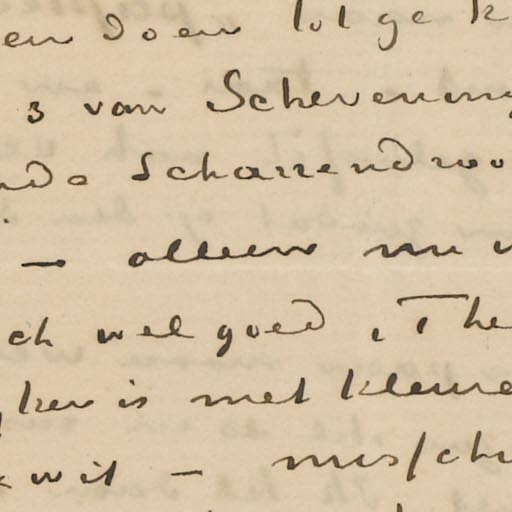 en doen lot ge k
3 van Schevening
nde scharrendroo
— alleen nu v
ch wel goed, The
ker is met kleure
wit — missch